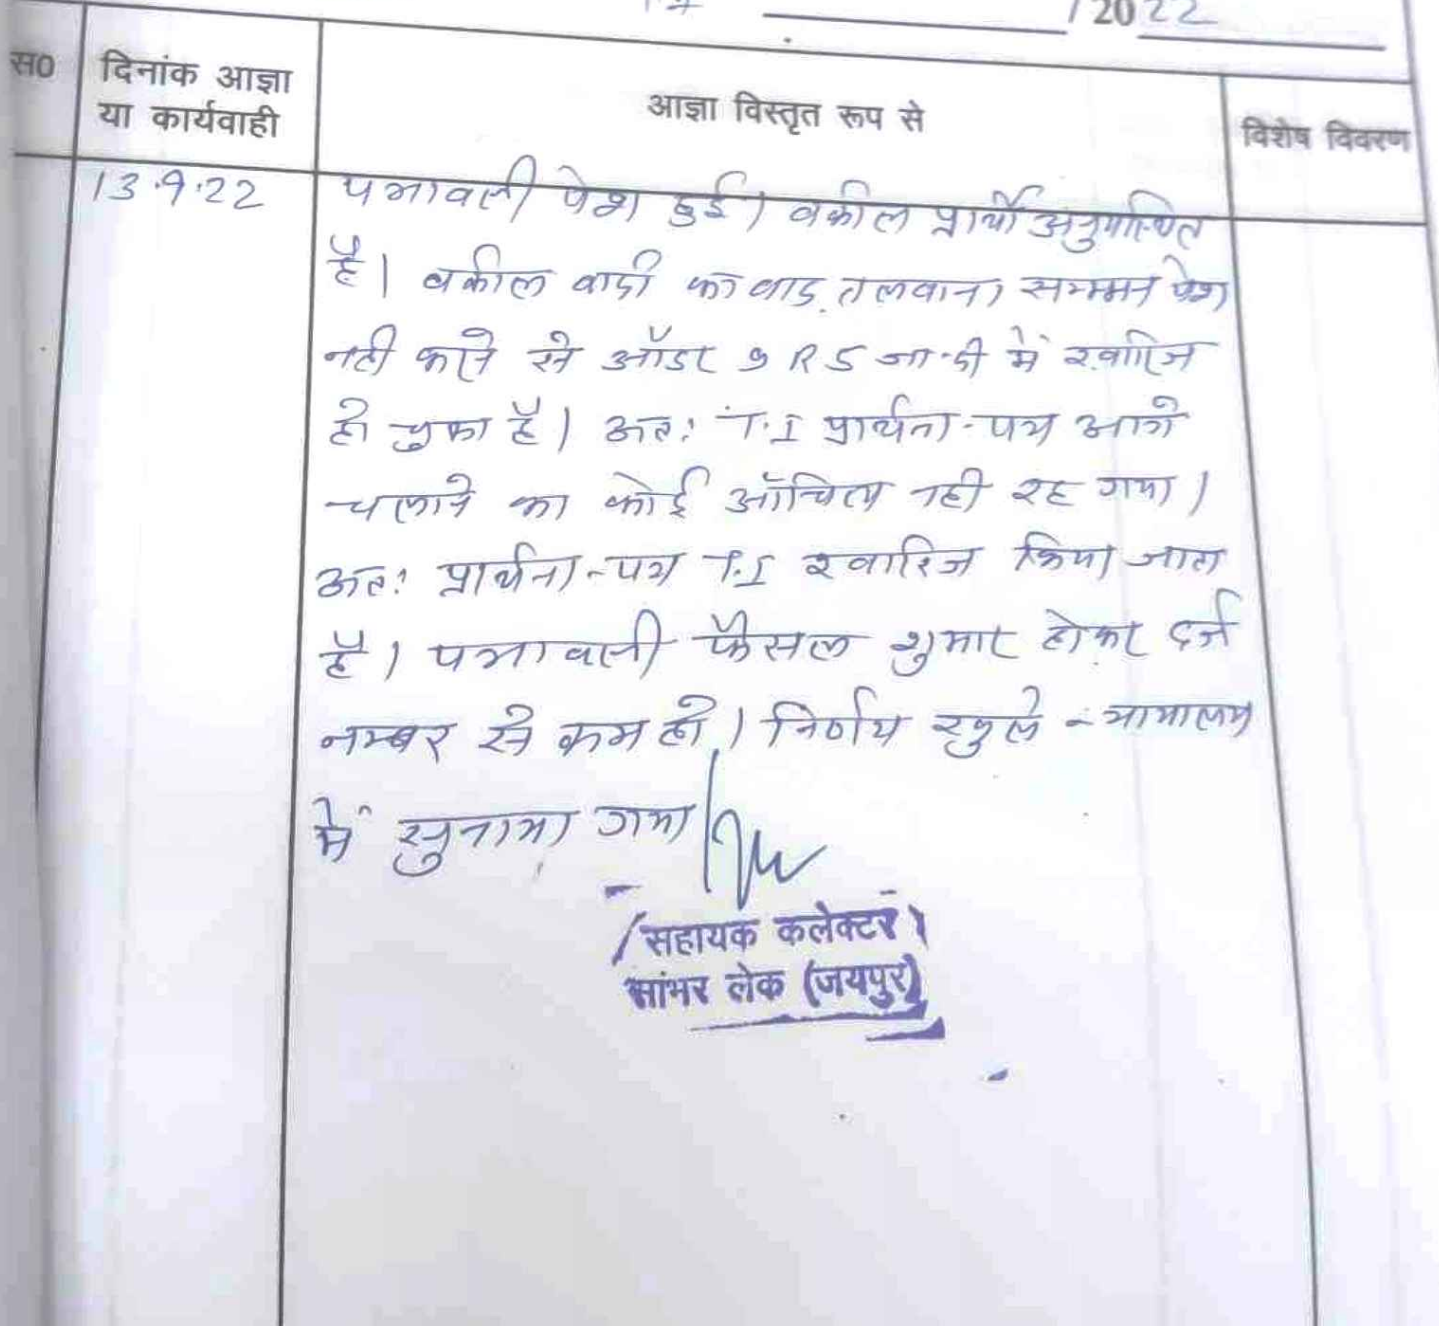 / 2022
स0 दिनांक आज्ञा या कार्यवाही आज्ञा विस्तृत रूप से विशेष विवरण
13.9.22 पत्रावली पेश हुई। वकील प्रार्थी अनुपस्थित
है। वकील वादी का वाद तलवाना सम्मन पेश
नही करने से ऑडर 9 R 5 जा.दी में खारिज
हो चुका है। अतः T.I प्रार्थना-पत्र आगे
चलाने का कोई औचित्य नही रह गया।
अतः प्रार्थना-पत्र T.I खारिज किया जाता
है। पत्रावली फैसल शुमार होकर दर्ज
नम्बर से कम हो। निर्णय खुले न्यायालय
में सुनाया गया
(सहायक कलेक्टर)
सांभर लेक (जयपुर)